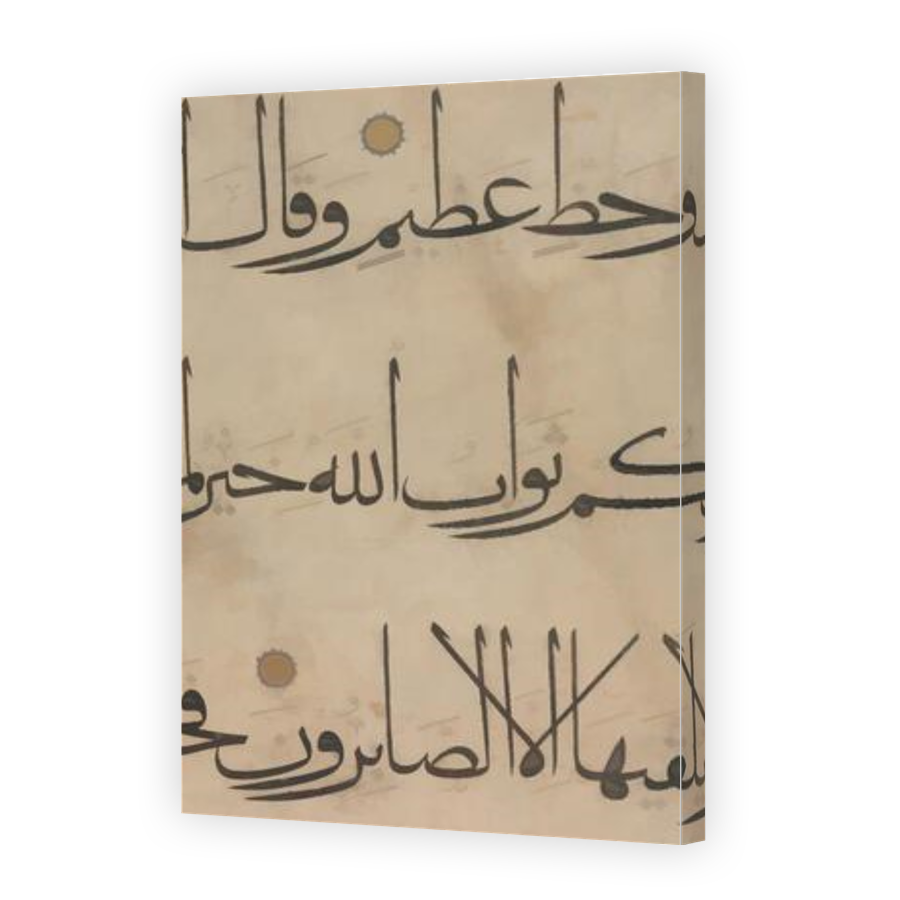 حظ عظيم وقال
ـكم ثواب الله خير
يلقيها الا الصابرون